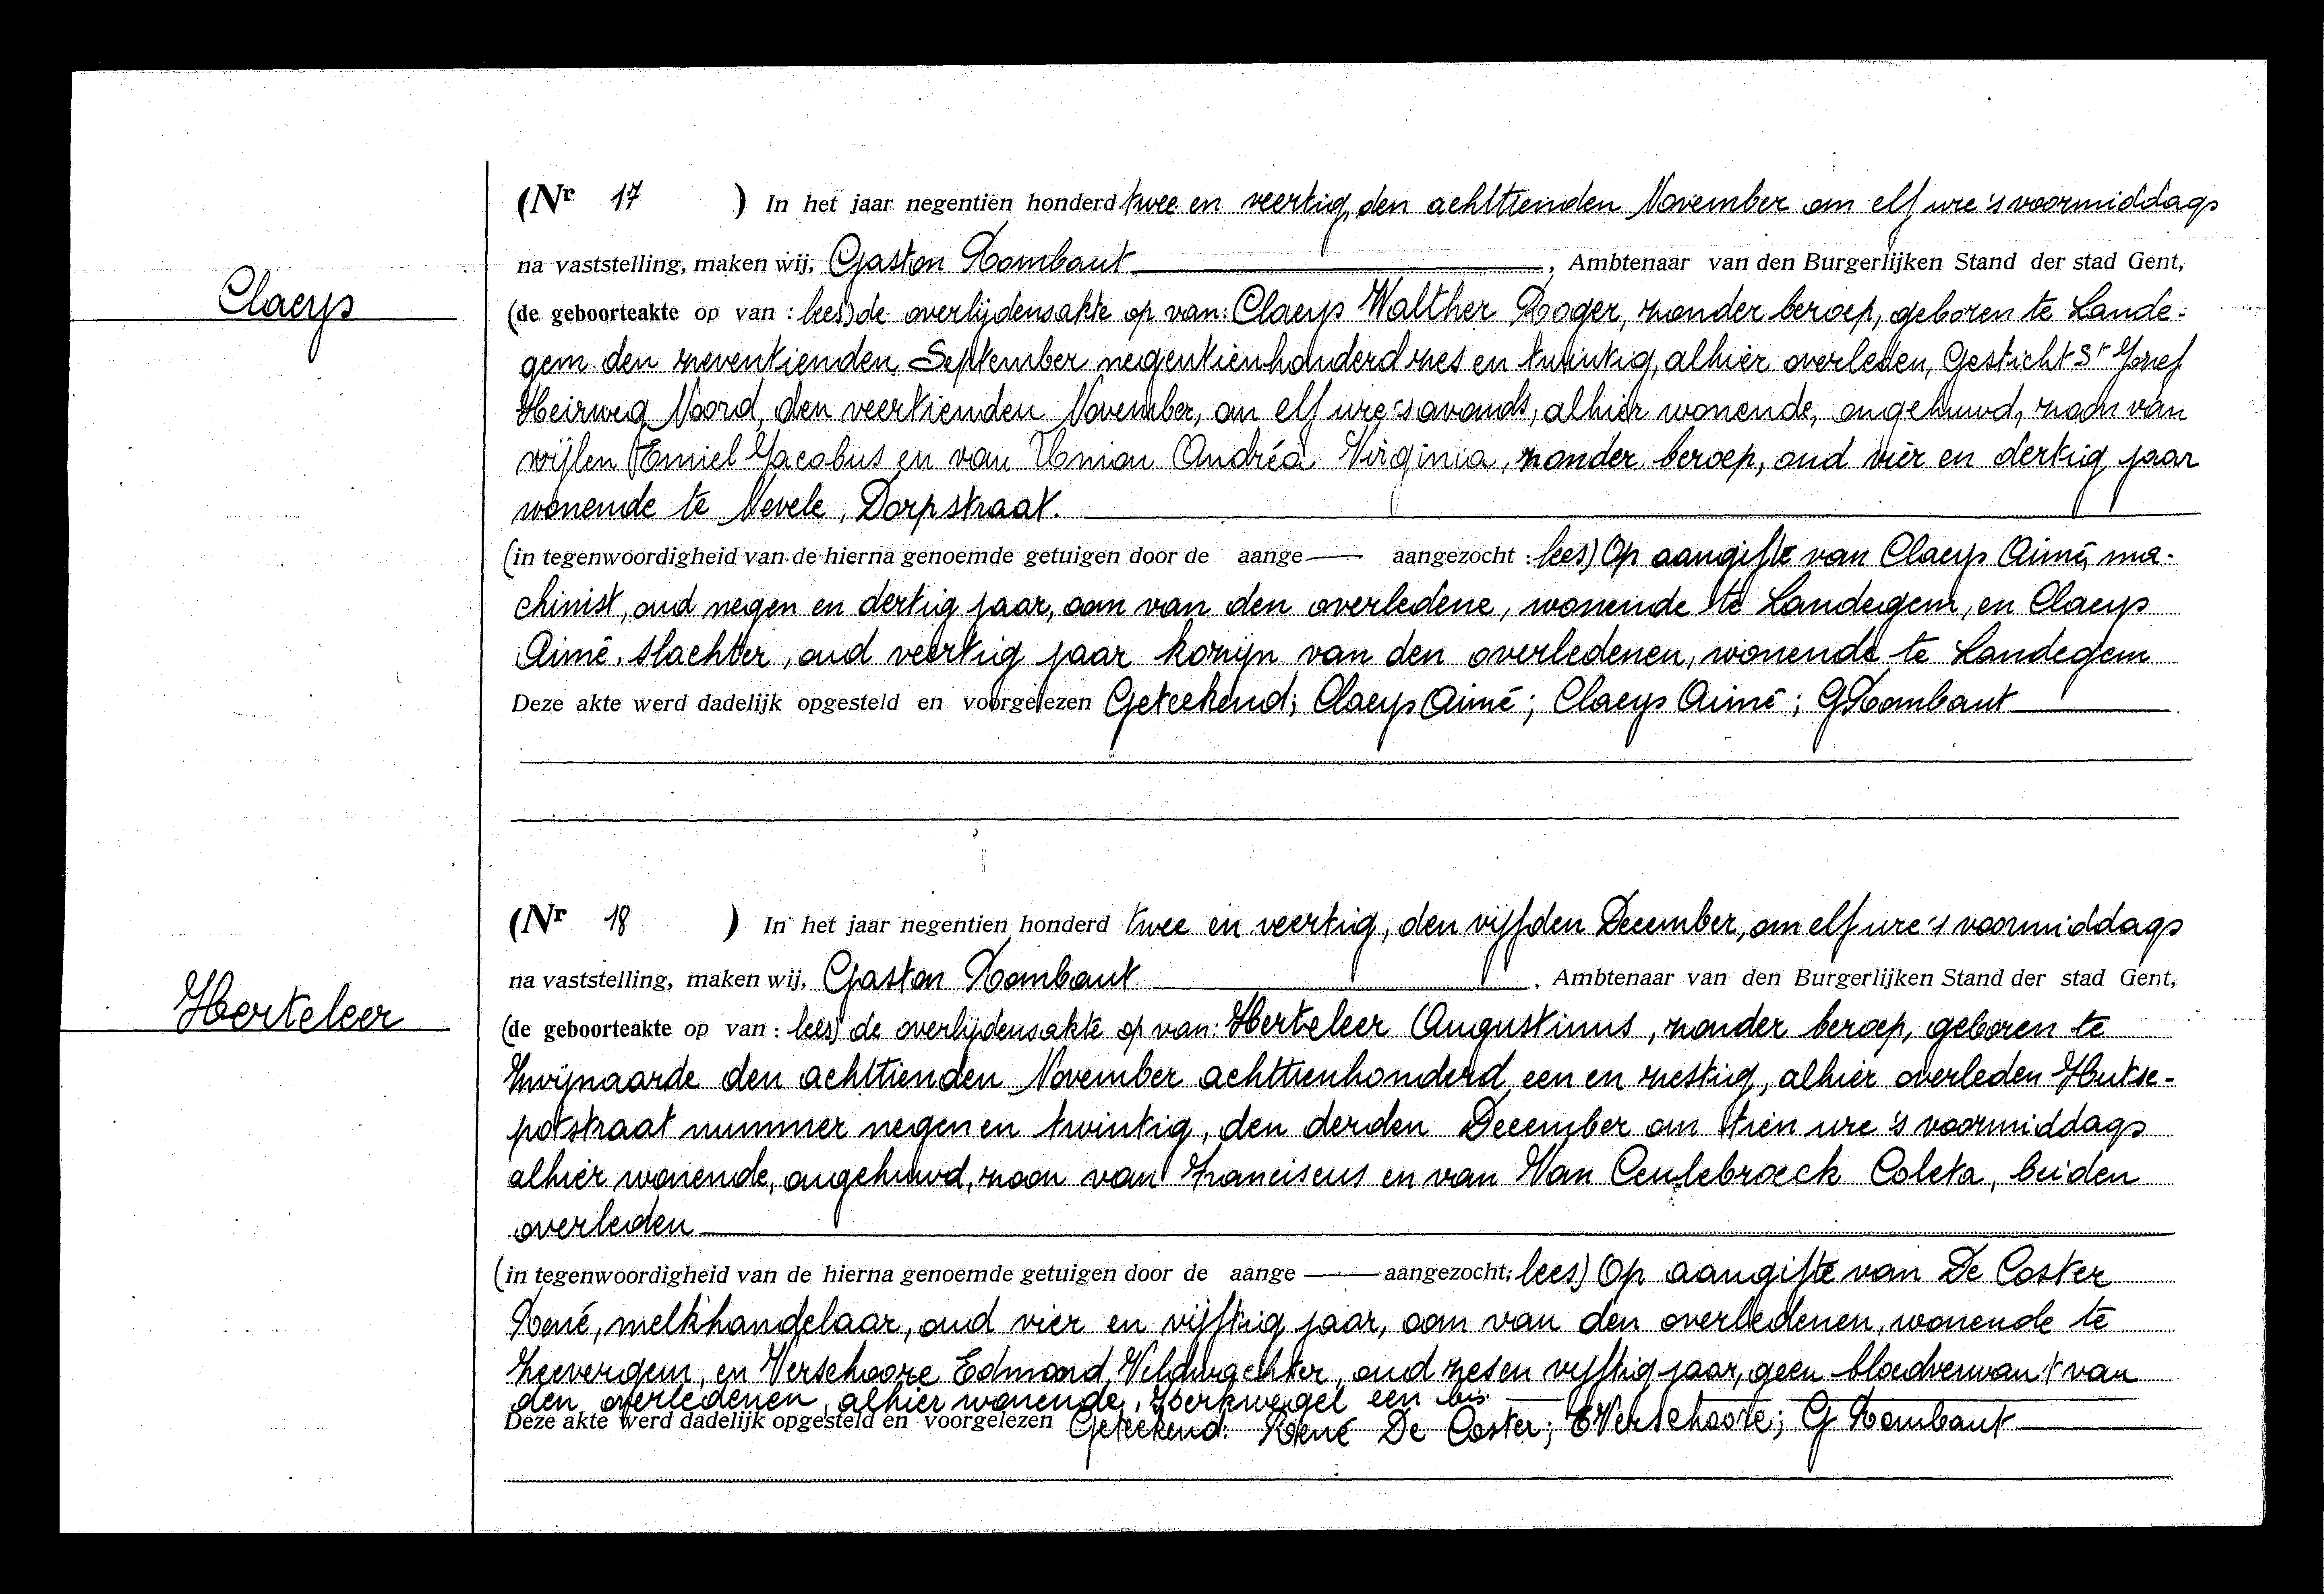 (Nr 17 ) In het jaar negentien honderd twee en veertig, den achttienden November om elf ure 's voormiddags
na vaststelling, maken wij, Gaston Rombaut , Ambtenaar van den Burgerlijken Stand der stad Gent,
Claeys
(de geboorteakte op van : lees) de overlijdensakte op van: Claeys Walther Roger, zonder beroep, geboren te Lande-
gem den zeventienden September negentienhonderd zes en twintig, alhier overleden, Gesticht St Jozef
Heirweg Noord, den veertienden November, om elf ure 's avonds, alhier wonende, ongehuwd, zoon van
wijlen Emiel Jacobus en van Andréa Virginia, zonder beroep, oud vier en dertig jaar
wonende te Nevele, Dorpstraat.
(in tegenwoordigheid van de hierna genoemde getuigen door de aange— aangezocht : lees) Op aangifte van Claeys Aimé, ma-
chinist, oud negen en dertig jaar, oom van den overledene, wonende te Landegem, en Claeys
Aimé, slachter, oud veertig jaar kozijn van den overledenen, wonende te Landegem
Deze akte werd dadelijk opgesteld en voorgelezen Geteekend; Claeys Aimé; Claeys Aimé; G Rombaut
(Nr 18 ) In het jaar negentien honderd twee en veertig, den vijfden December, om elf ure 's voormiddags
na vaststelling, maken wij, Gaston Rombaut , Ambtenaar van den Burgerlijken Stand der stad Gent,
Herteleer
(de geboorteakte op van : lees) de overlijdensakte op van: Herteleer Augustinus, zonder beroep, geboren te
Zwijnaarde den achttienden November achttienhonderd een en zestig, alhier overleden Hutse-
potstraat nummer negen en twintig, den derden December om tien ure 's voormiddags
alhier wonende, ongehuwd, zoon van Franciscus en van Van Ceulebroeck Coleta, beiden
overleden
(in tegenwoordigheid van de hierna genoemde getuigen door de aange — aangezocht: lees) Op aangifte van De Coster
René, melkhandelaar, oud vier en vijftig jaar, oom van den overledenen, wonende te
Zeevergem, en Verschoore Edmond, Veldwachter, oud zes en vijftig jaar, geen bloedverwant van
den overledenen, alhier wonende, een bis
Deze akte werd dadelijk opgesteld en voorgelezen Geteekend: René De Coster; E Verschoore; G Rombaut